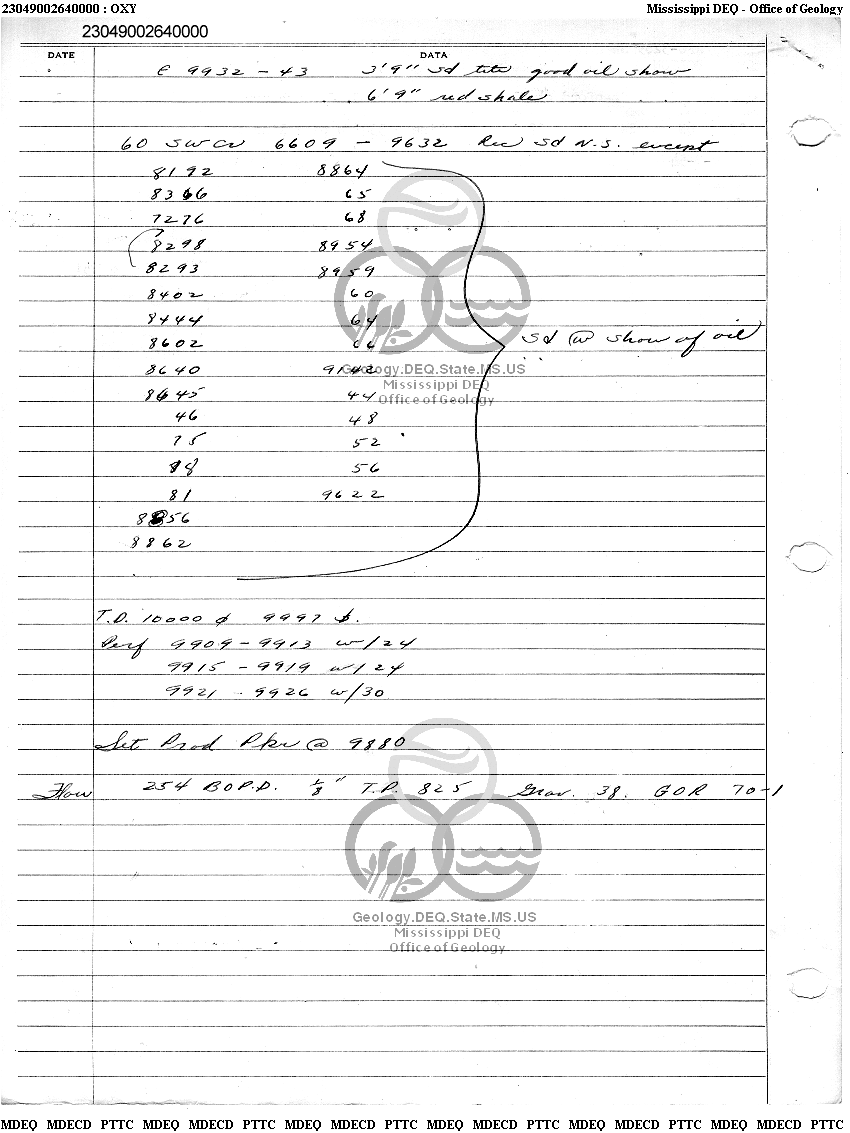 23049002640000 : OXY Mississippi DEQ - Office of Geology
23049002640000
DATE DATA
C 9932 - 43 3'9" sd tite good oil show
6'9" red shale
60 SWC 6609 - 9632 Rec Sd N.S. except
8192 8864
8366 65
7276 68
8298 8954
8293 8959
8402 60
8444 64
8602 66
8640 9142
8645 44
46 48
75 52
78 56
81 9622
8856
8862
Sd @ show of oil
Geology.DEQ.State.MS.US
Mississippi DEQ
Office of Geology
T.D. 10000 9997
Perf 9909 - 9913 w/24
9915 - 9919 w/24
9921 - 9926 w/30
Set Prod Pkr @ 9880
Flow 254 B.O.P.D. 1/8" T.P. 825 Grav. 38. GOR 70-1
Geology.DEQ.State.MS.US
Mississippi DEQ
Office of Geology
MDEQ MDECD PTTC MDEQ MDECD PTTC MDEQ MDECD PTTC MDEQ MDECD PTTC MDEQ MDECD PTTC MDEQ MDECD PTTC